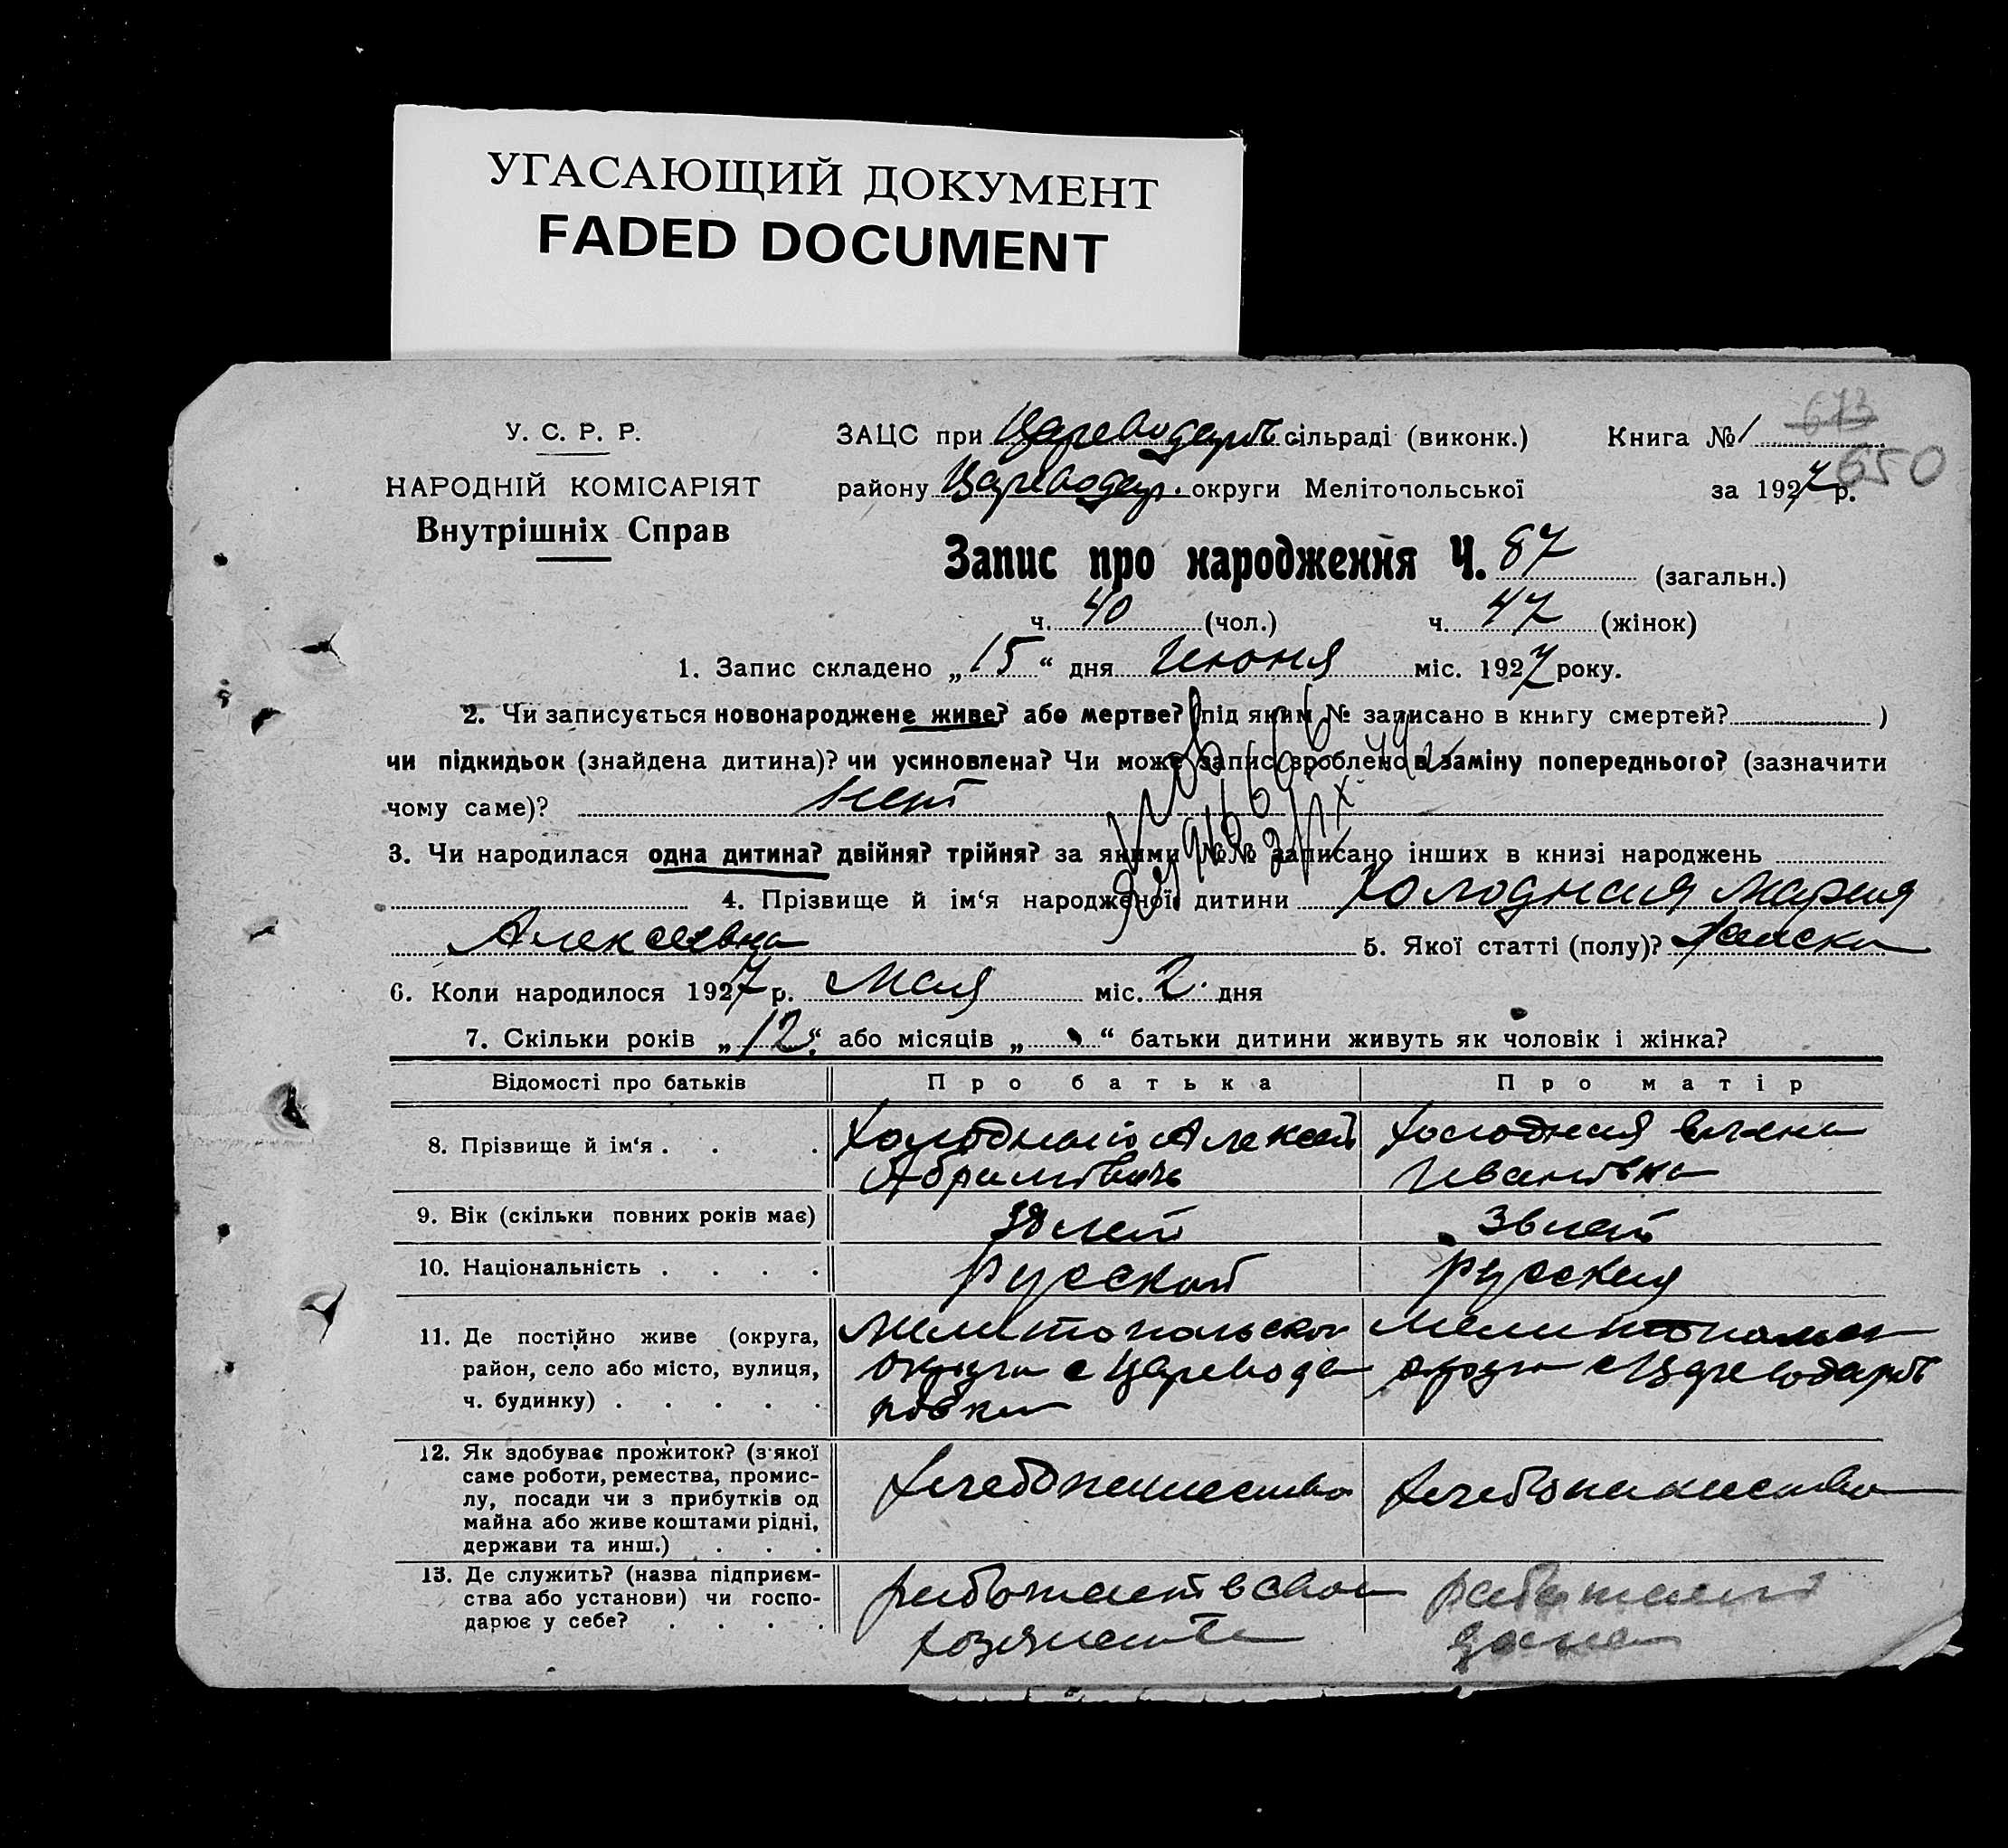 УГАСАЮЩИЙ ДОКУМЕНТ
FADED DOCUMENT
У. С. Р. Р.
НАРОДНІЙ КОМІСАРІЯТ
Внутрішніх Справ
ЗАЦС при Цареводарв. сільраді (виконк.) Книга №1 673
району Цареводар. округи Мелітопольської за 1927 р. 650
Запис про народження Ч. 87 (загальн.)
ч. 40 (чол.) ч. 47 (жінок)
1. Запис складено „15“ дня Июня міс. 1927 року.
2. Чи записується новонароджене живе? або мертве? (під яким № записано в книгу смертей? )
чи підкидьок (знайдена дитина)? чи усиновлена? Чи може запис зроблено в заміну попереднього? (зазначити
чому саме)? нет
3. Чи народилася одна дитина? двійня? трійня? за якими №№ записано інших в книзі народжень
4. Прізвище й ім‘я народженої дитини Холодная Мария
Алексеевна 5. Якої статті (полу)? Женска
6. Коли народилося 1927 р. Мая міс. 2. дня
7. Скільки років „12“ або місяців „ “ батьки дитини живуть як чоловік і жінка?
Відомості про батьків Про батька Про матір
8. Прізвище й ім‘я . . . Холодный Алексей Холодная Елена
Абрамович Ивановна
9. Вік (скільки повних років має) 38 лет 36 лет
10. Національність . . . . русской русская
11. Де постійно живе (округа, район, село або місто, вулиця, ч. будинку) . . . . . Мелитопольской Мелитопольск
округи с Цареводаровка округи с Цареводаров
12. Як здобуває прожиток? (з якої саме роботи, ремества, промислу, посади чи з прибутків од майна або живе коштами рідні, держави та инш.) . . . хлебопашество хлебопашество
13. Де служить? (назва підприємства або установи) чи господарює у себе? . . . . работает в свом работает
хозяйстве дома